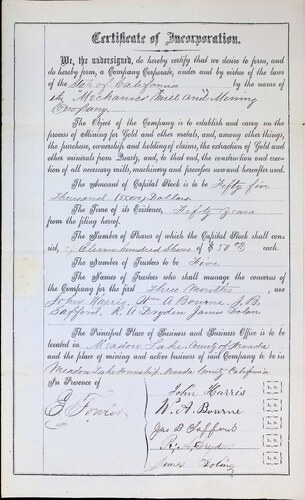 Certificate of Incorporation.
We, the undersigned, do hereby certify that we desire to form, and
do hereby form, a Company Corporate, under and by virtue of the laws
of the State of California by the name of
the Mechanics Mill and Mining
Company
The Object of the Company is to establish and carry on the
process of Mining for Gold and other metals, and, among other things,
the purchase, ownership and holding of claims, the extraction of Gold and
other minerals from Quartz, and, to that end, the construction and erec-
tion of all necessary mills, machinery and processes wanted hereafter used.
The Amount of Capital Stock is to be Fifty five
Thousand (55000) Dollars
The Time of its Existence, Fifty Years
from the filing hereof.
The Number of Shares of which the Capital Stock shall con-
sist, Eleven hundred Shares of $50 00 each.
The Number of Trustees to be Five
The Names of Trustees who shall manage the concerns of
the Company for the first Three Months, are
John Harris, W A Bourne, J. B.
Safford, R. A Dryden James Dolan
The Principal Place of Business and Business Office is to be
located in Meadow Lake County of Nevada
and the place of mining and active business of said Company to be in
Meadow Lake Township Nevada County California
In Presence of
John Harris
W. A. Bourne
Jas B Safford
R. A. Dryden
James Dolan